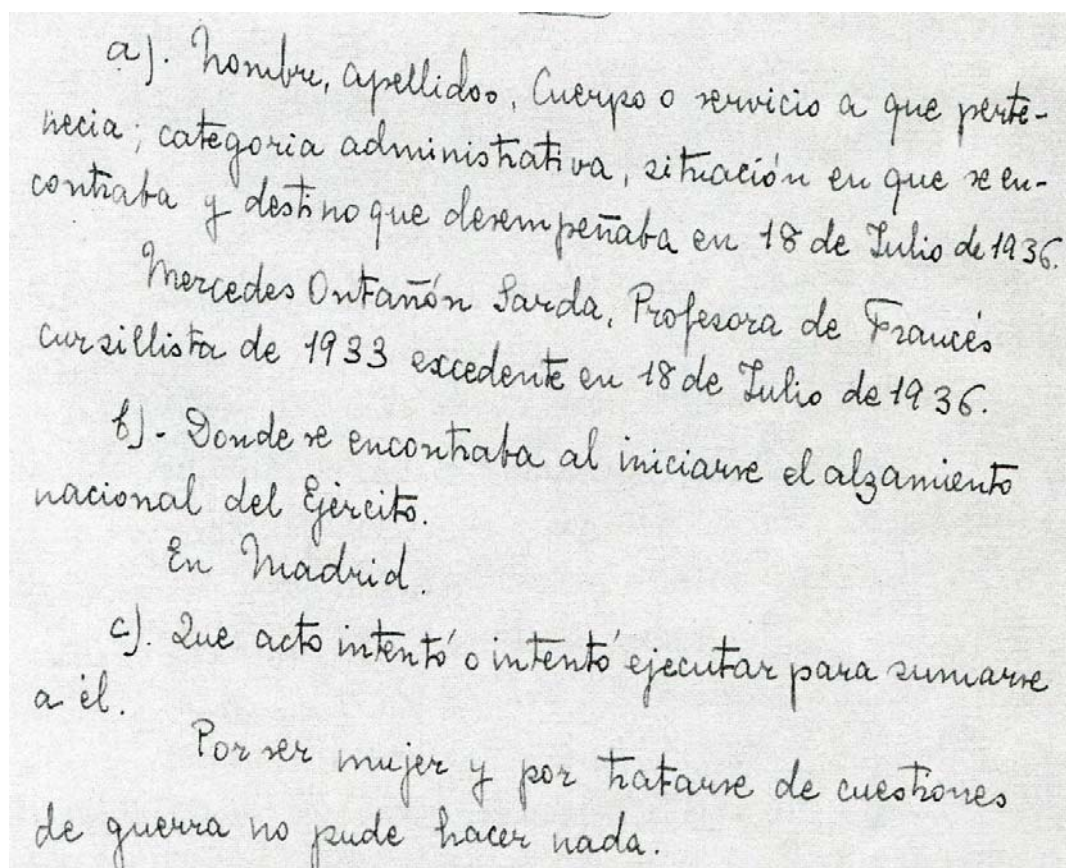 a). Nombre, apellidos, Cuerpo o servicio a que perte-
necia; categoria administrativa, situación en que se en-
contraba y destino que desempeñaba en 18 de Julio de 1936.
Mercedes Ontañón Sarda, Profesora de Francés
cursillista de 1933 excedente en 18 de Julio de 1936.
b)- Donde se encontraba al iniciarse el alzamiento
nacional del Ejército.
En Madrid.
c). Que acto intentó o intentó ejecutar para sumarse
a él.
Por ser mujer y por tratarse de cuestiones
de guerra no pude hacer nada.